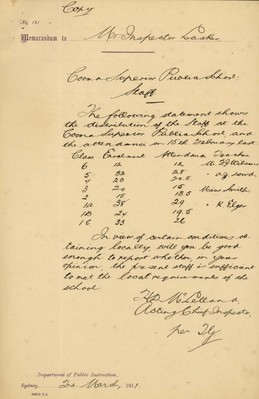 Copy
No. 151
Memorandum to Mr Inspector Lasker
Cooma Superior Public School:
Staff
The following statement shows
the distribution of the staff at the
Cooma Superior Public School, and
the attendance on 15th February last.
Class Enrolment Attendance Teacher
6 12 12
5 32 28
4 23 20.5
3 20 15 Miss Smith
2 15 13.5
1a 35 29 " K Elger
1B 24 19.5
1C 33 26
In view of certain conditions ob-
taining locally will you be good
enough to report whether, in your
opinion, the present staff is sufficient
to meet the local requirements of
the school
H.D. McLelland
Acting Chief Inspector
per
Department of Public Instruction,
Sydney, 2nd March, 191